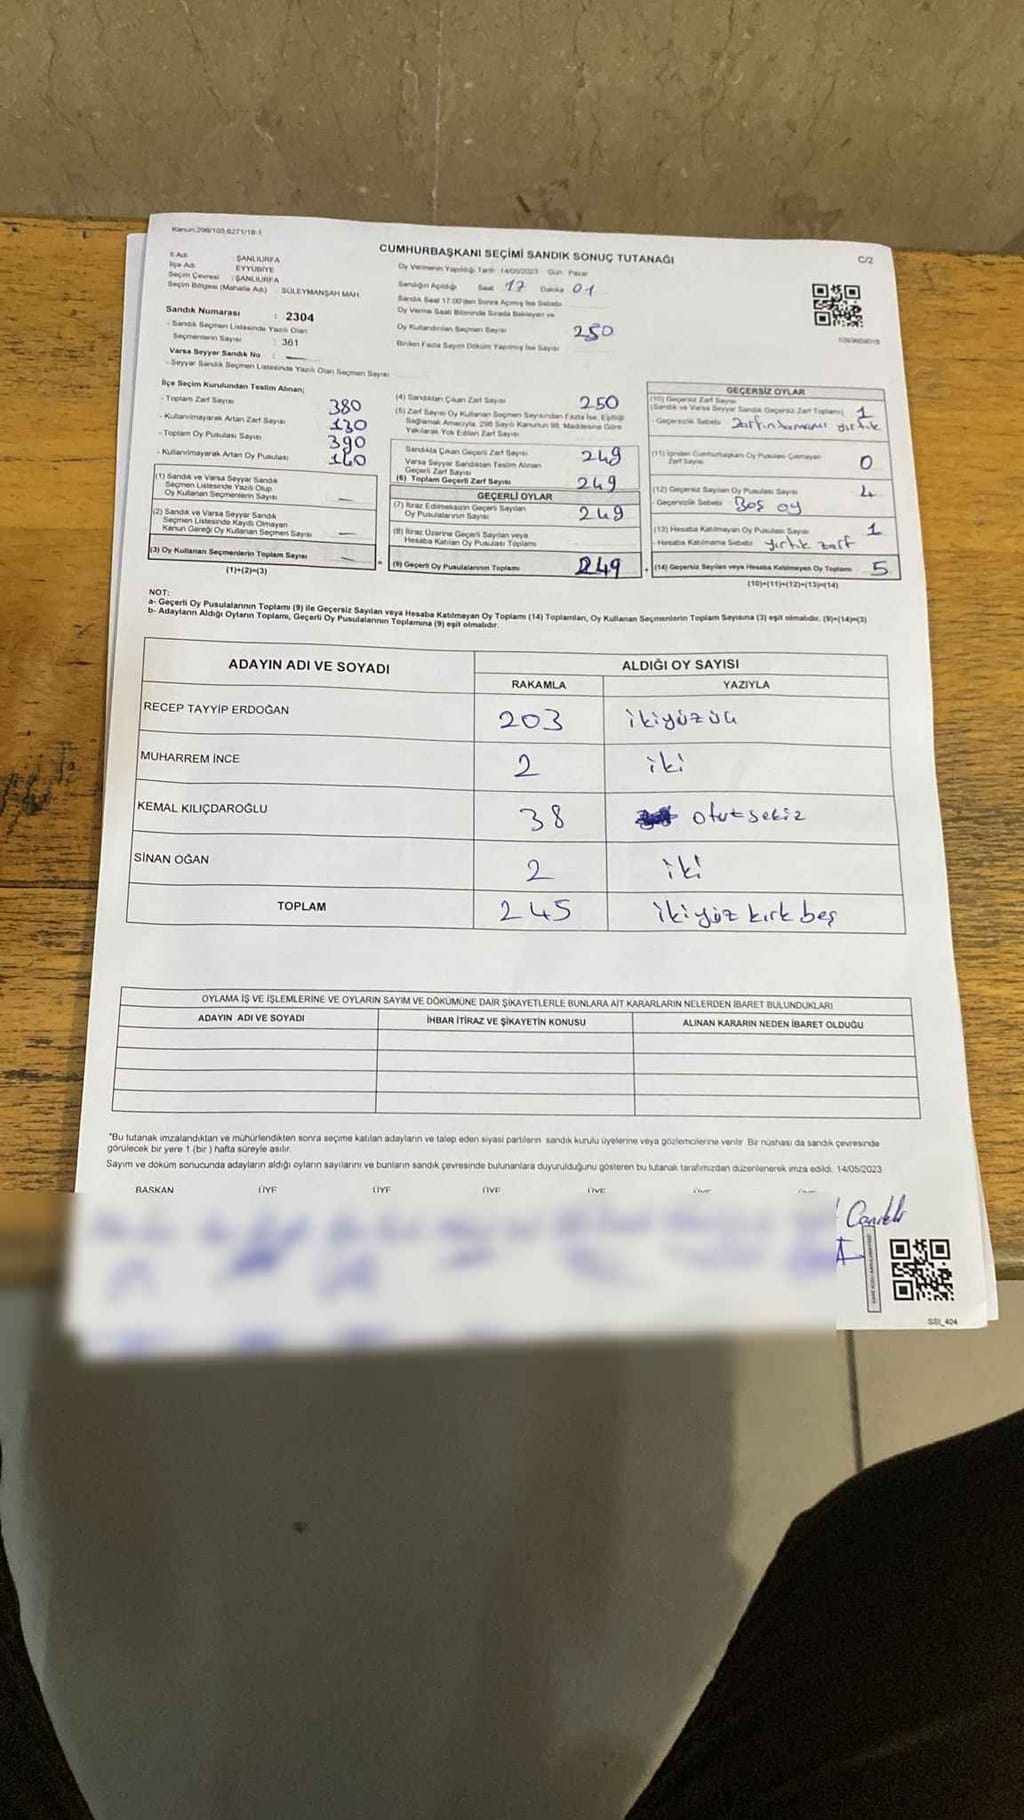 Kanun:298/105;6271/18-1
CUMHURBAŞKANI SEÇİMİ SANDIK SONUÇ TUTANAĞI
C/2
İl Adı : ŞANLIURFA
İlçe Adı : EYYÜBİYE
Seçim Çevresi : ŞANLIURFA
Seçim Bölgesi (Mahalle Adı) : SÜLEYMANŞAH MAH.
Sandık Numarası : 2304
- Sandık Seçmen Listesinde Yazılı Olan
Seçmenlerin Sayısı : 361
Varsa Seyyar Sandık No :
- Seyyar Sandık Seçmen Listesinde Yazılı Olan Seçmen Sayısı
Oy Vermenin Yapıldığı Tarih 14/05/2023 Gün Pazar
Sandığın Açıldığı Saat 17 Dakika 01
Sandık Saat 17:00'den Sonra Açılmış İse Sebebi
Oy Verme Saati Bitiminde Sırada Bekleyen ve
Oy Kullandırılan Seçmen Sayısı 250
Birden Fazla Sayım Döküm Yapılmış İse Sayısı
İlçe Seçim Kurulundan Teslim Alınan;
- Toplam Zarf Sayısı 380
- Kullanılmayarak Artan Zarf Sayısı 130
- Toplam Oy Pusulası Sayısı 390
- Kullanılmayarak Artan Oy Pusulası 140
(1) Sandık ve Varsa Seyyar Sandık
Seçmen Listesinde Yazılı Olup
Oy Kullanan Seçmenlerin Sayısı
(2) Sandık ve Varsa Seyyar Sandık
Seçmen Listesinde Kayıtlı Olmayan
Kanun Gereği Oy Kullanan Seçmen Sayısı
(3) Oy Kullanan Seçmenlerin Toplam Sayısı
(1)+(2)=(3)
(4) Sandıktan Çıkan Zarf Sayısı 250
(5) Zarf Sayısı Oy Kullanan Seçmen Sayısından Fazla İse, Eşitliği
Sağlamak Amacıyla, 298 Sayılı Kanunun 98. Maddesine Göre
Yakılarak Yok Edilen Zarf Sayısı
Sandıkta Çıkan Geçerli Zarf Sayısı 249
Varsa Seyyar Sandıktan Teslim Alınan
Geçerli Zarf Sayısı
(6) Toplam Geçerli Zarf Sayısı 249
GEÇERLİ OYLAR
(7) İtiraz Edilmeksizin Geçerli Sayılan
Oy Pusulalarının Sayısı 249
(8) İtiraz Üzerine Geçerli Sayılan veya
Hesaba Katılan Oy Pusulası Toplamı
(9) Geçerli Oy Pusulalarının Toplamı 249
GEÇERSİZ OYLAR
(10) Geçersiz Zarf Sayısı
(Sandık ve Varsa Seyyar Sandık Geçersiz Zarf Toplamı) 1
- Geçersizlik Sebebi Zarfın tamamı yırtık
(11) İçinden Cumhurbaşkanı Oy Pusulası Çıkmayan
Zarf Sayısı 0
(12) Geçersiz Sayılan Oy Pusulası Sayısı 4
- Geçersizlik Sebebi Boş oy
(13) Hesaba Katılmayan Oy Pusulası Sayısı 1
- Hesaba Katılmama Sebebi yırtık zarf
(14) Geçersiz Sayılan veya Hesaba Katılmayan Oy Toplamı 5
(10)+(11)+(12)+(13)=(14)
NOT:
a- Geçerli Oy Pusulalarının Toplamı (9) ile Geçersiz Sayılan veya Hesaba Katılmayan Oy Toplamı (14) Toplamları, Oy Kullanan Seçmenlerin Toplam Sayısına (3) eşit olmalıdır. (9)+(14)=(3)
b- Adayların Aldığı Oyların Toplamı, Geçerli Oy Pusulalarının Toplamına (9) eşit olmalıdır.
ADAYIN ADI VE SOYADI
ALDIĞI OY SAYISI
RAKAMLA YAZIYLA
RECEP TAYYİP ERDOĞAN 203 ikiyüzüç
MUHARREM İNCE 2 iki
KEMAL KILIÇDAROĞLU 38 otutsekiz
SİNAN OĞAN 2 iki
TOPLAM 245 ikiyüz kırk beş
OYLAMA İŞ VE İŞLEMLERİNE VE OYLARIN SAYIM VE DÖKÜMÜNE DAİR ŞİKAYETLERLE BUNLARA AİT KARARLARIN NELERDEN İBARET BULUNDUKLARI
ADAYIN ADI VE SOYADI İHBAR İTİRAZ VE ŞİKAYETİN KONUSU ALINAN KARARIN NEDEN İBARET OLDUĞU
*Bu tutanak imzalandıktan ve mühürlendikten sonra seçime katılan adayların ve talep eden siyasi partilerin sandık kurulu üyelerine veya gözlemcilerine verilir. Bir nüshası da sandık çevresinde
görülecek bir yere 1 (bir) hafta süreyle asılır.
Sayım ve döküm sonucunda adayların aldığı oyların sayılarını ve bunların sandık çevresinde bulunanlara duyurulduğunu gösteren bu tutanak tarafımızdan düzenlenerek imza edildi. 14/05/2023
BAŞKAN ÜYE ÜYE ÜYE ÜYE
SSI_404